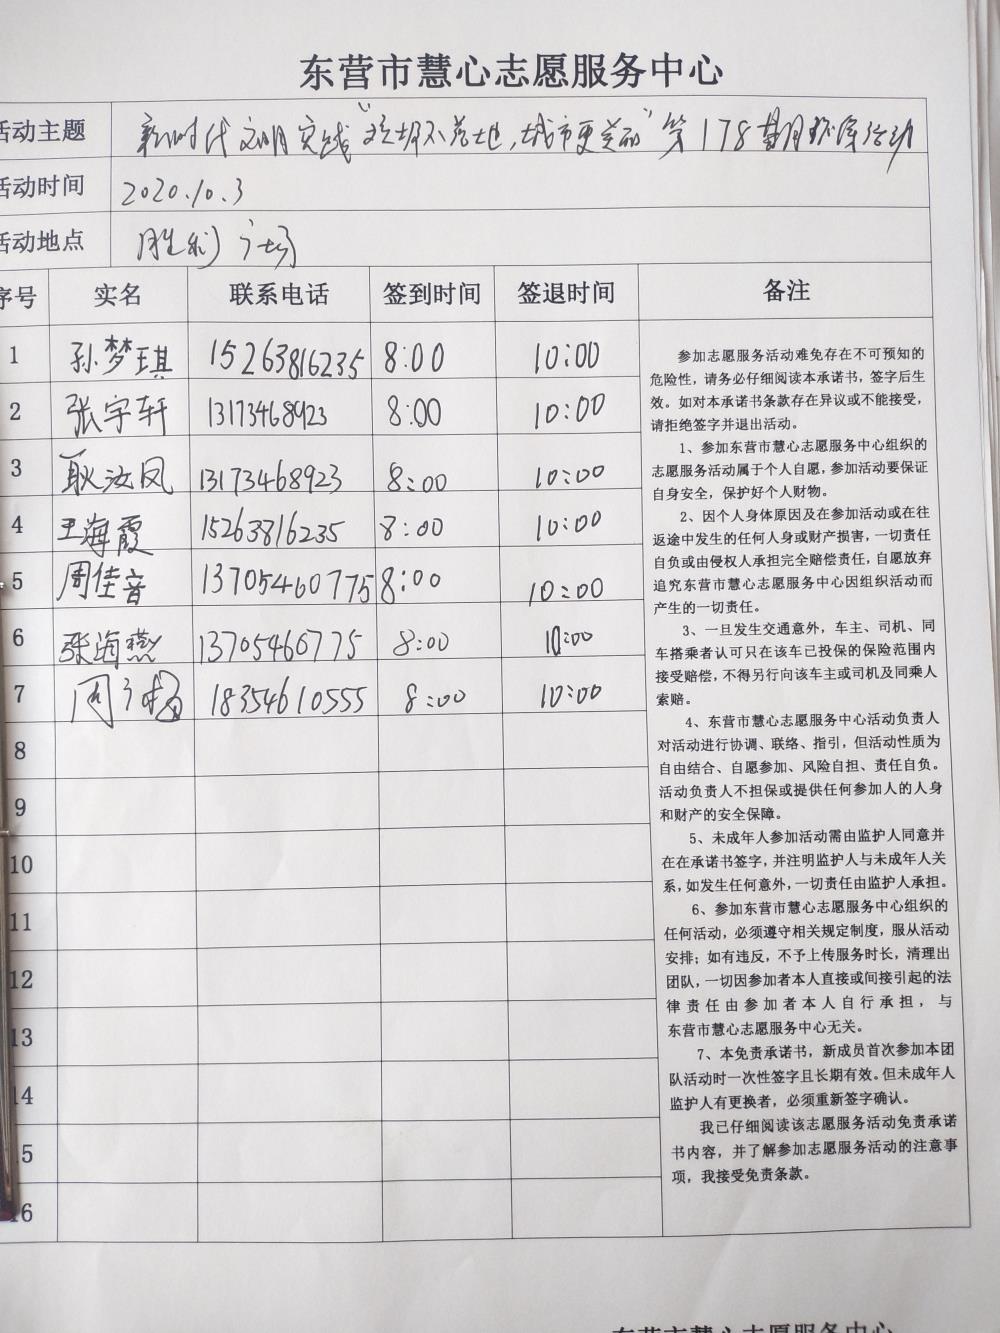 东营市慧心志愿服务中心
活动主题 新时代文明实践“垃圾不落地，城市更美丽”第178期环保活动
活动时间 2020.10.3
活动地点 胜利广场
序号 实名 联系电话 签到时间 签退时间 备注
1 孙梦琪 15263816235 8:00 10:00
2 张宇轩 13173468923 8:00 10:00
3 耿汝凤 13173468923 8:00 10:00
4 王海霞 15263816235 8:00 10:00
5 周佳音 13705460775 8:00 10:00
6 张海燕 13705460775 8:00 10:00
7 周 18354610555 8:00 10:00
8
9
10
11
12
13
14
15
16
参加志愿服务活动难免存在不可预知的
危险性，请务必仔细阅读本承诺书，签字后生
效。如对本承诺书条款存在异议或不能接受，
请拒绝签字并退出活动。
1、参加东营市慧心志愿服务中心组织的
志愿服务活动属于个人自愿，参加活动要保证
自身安全，保护好个人财物。
2、因个人身体原因及在参加活动或在往
返途中发生的任何人身或财产损害，一切责任
自负或由侵权人承担完全赔偿责任，自愿放弃
追究东营市慧心志愿服务中心因组织活动而
产生的一切责任。
3、一旦发生交通意外，车主、司机、同
车搭乘者认可只在该车已投保的保险范围内
接受赔偿，不得另行向该车主或司机及同乘人
索赔。
4、东营市慧心志愿服务中心活动负责人
对活动进行协调、联络、指引，但活动性质为
自由结合、自愿参加、风险自担、责任自负。
活动负责人不担保或提供任何参加人的人身
和财产的安全保障。
5、未成年人参加活动需由监护人同意并
在在承诺书签字，并注明监护人与未成年人关
系，如发生任何意外，一切责任由监护人承担。
6、参加东营市慧心志愿服务中心组织的
任何活动，必须遵守相关规定制度，服从活动
安排；如有违反，不予上传服务时长，清理出
团队，一切因参加者本人直接或间接引起的法
律责任由参加者本人自行承担，与
东营市慧心志愿服务中心无关。
7、本免责承诺书，新成员首次参加本团
队活动时一次性签字且长期有效。但未成年人
监护人有更换者，必须重新签字确认。
我已仔细阅读该志愿服务活动免责承诺
书内容，并了解参加志愿服务活动的注意事
项，我接受免责条款。
东营市慧心志愿服务中心